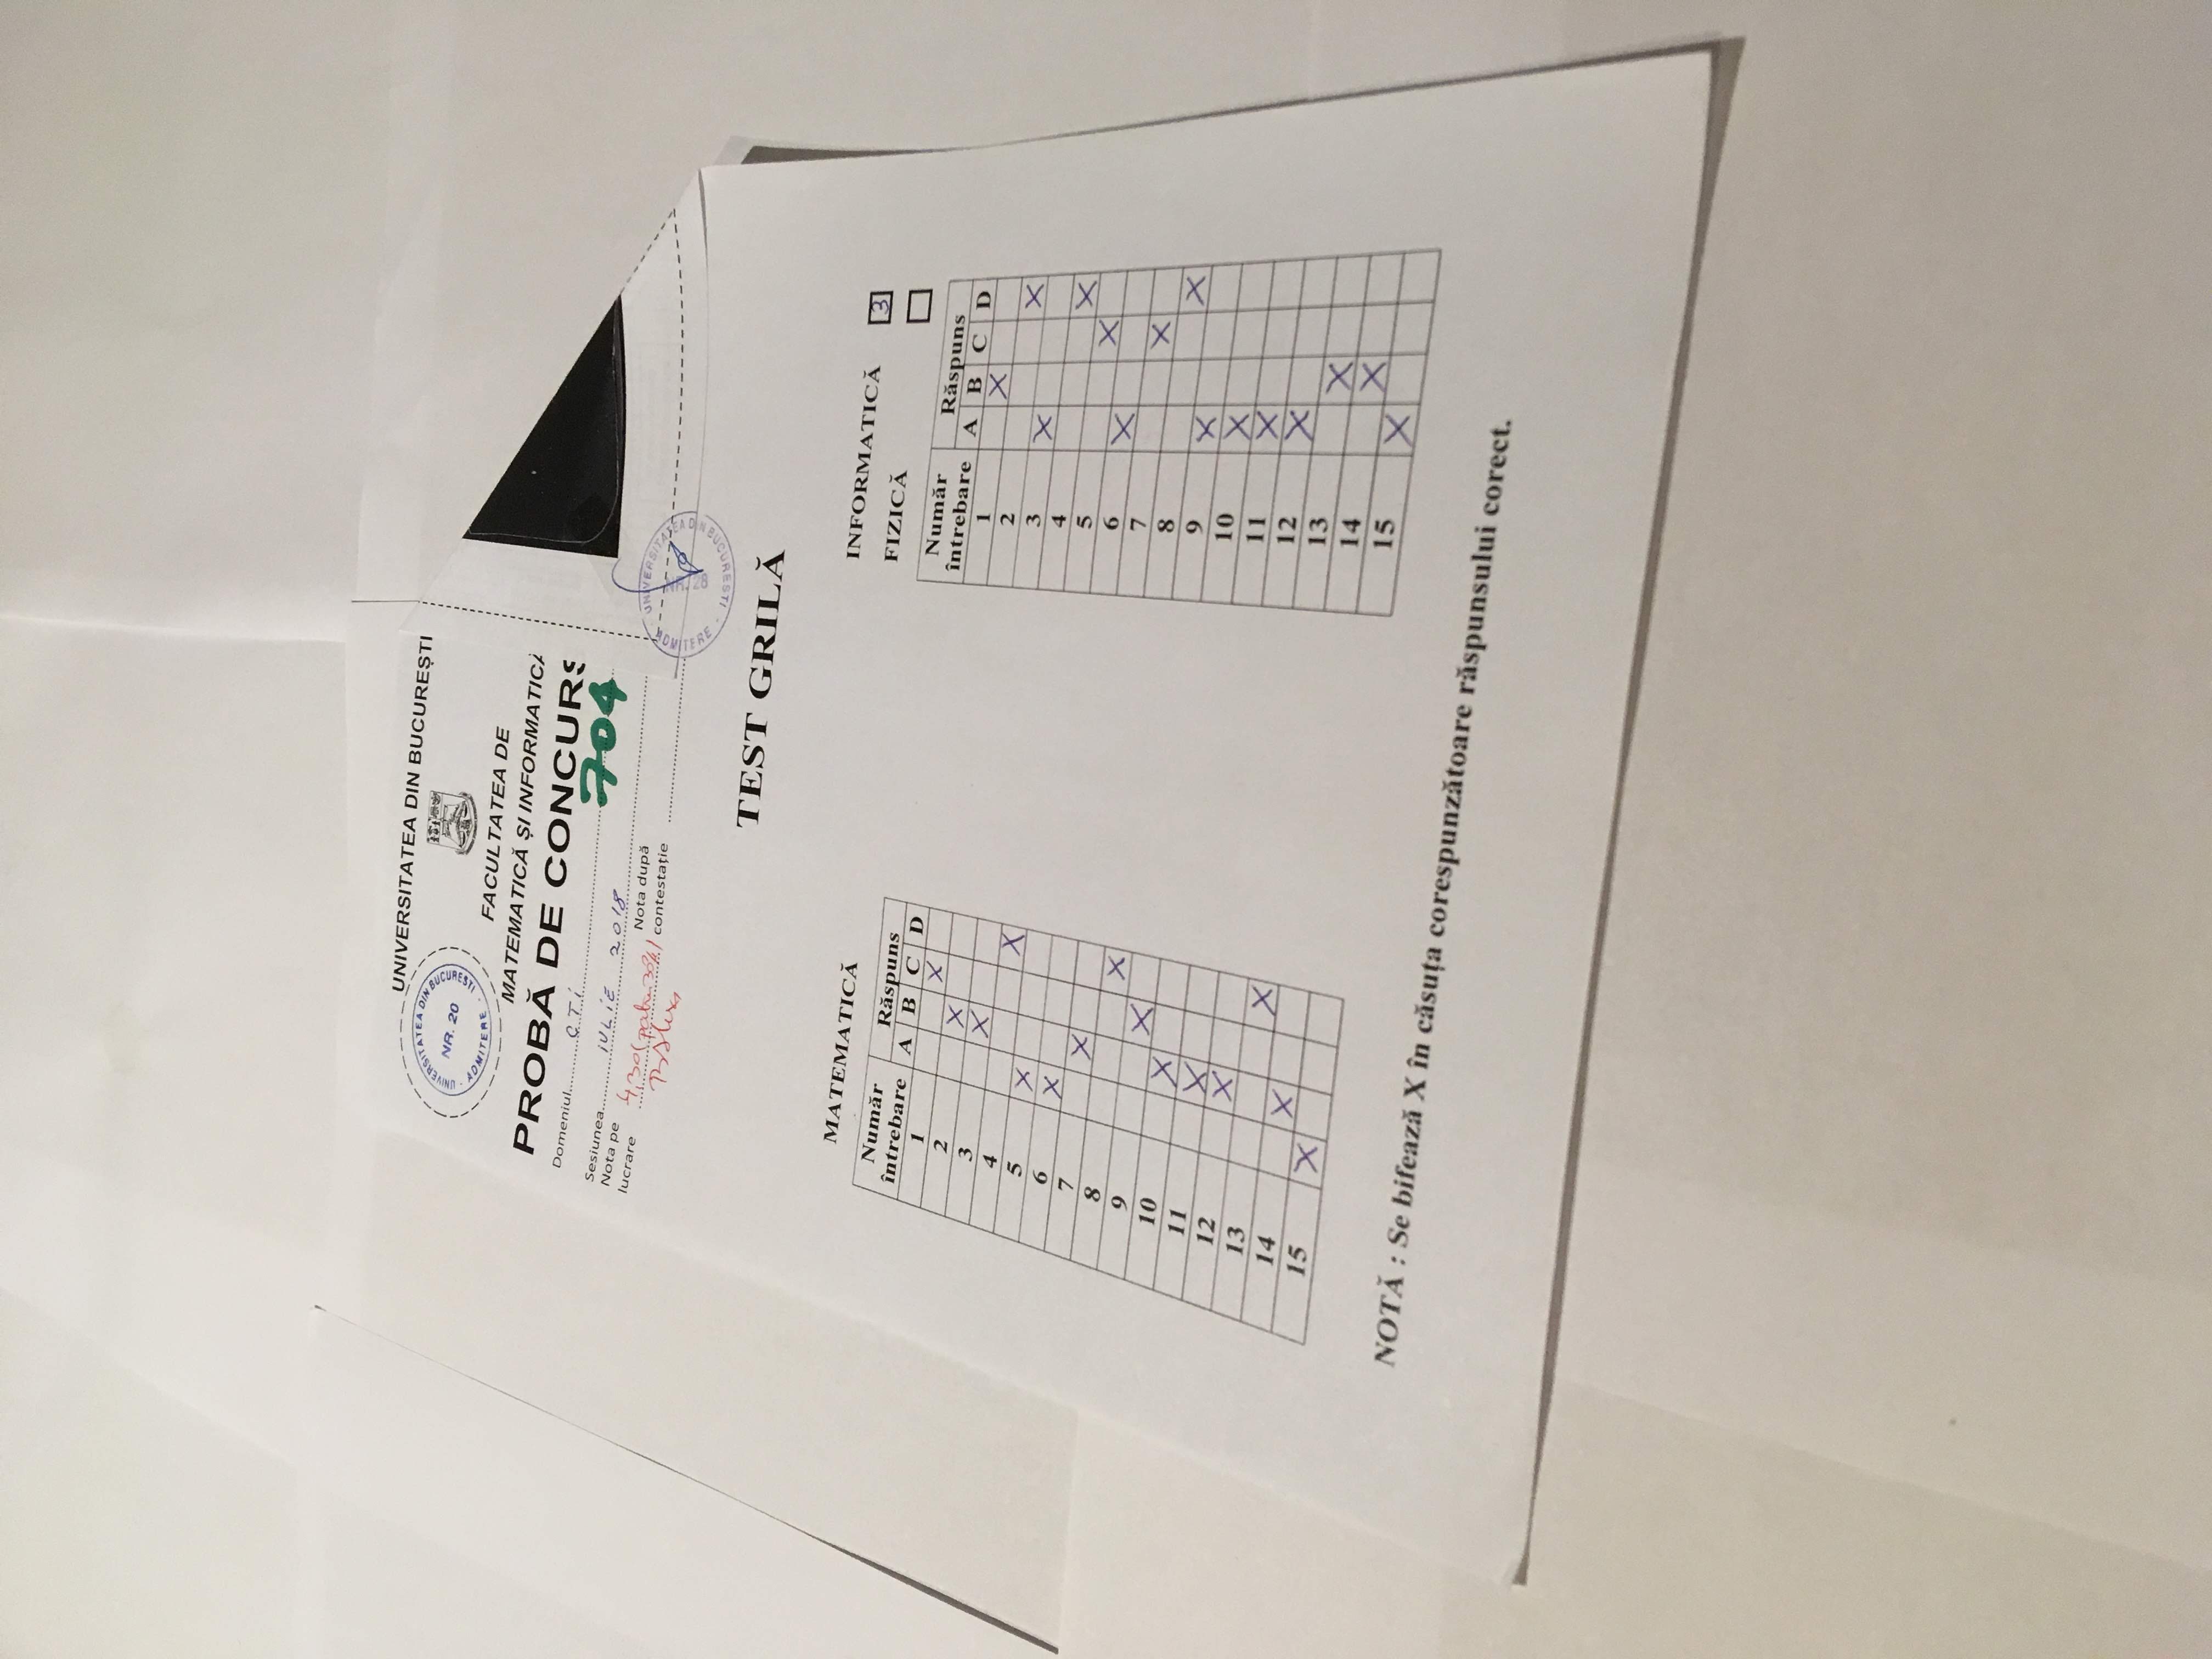 UNIVERSITATEA DIN BUCUREȘTI
UNIVERSITATEA DIN BUCURESTI
NR. 20
ADMITERE
FACULTATEA DE
MATEMATICĂ ȘI INFORMATICĂ
PROBĂ DE CONCURS
Domeniul CTI
704
Sesiunea IULIE 2018
Nota pe lucrare 4,30
Nota după contestație
UNIVERSITATEA DIN BUCURESTI
NR. 28
ADMITERE
TEST GRILĂ
MATEMATICĂ
Număr întrebare Răspuns
A B C D
1 X
2 X
3 X
4 X
5 X
6 X
7 X
8 X
9 X
10 X
11 X
12 X
13 X
14 X
15 X
INFORMATICĂ 3
FIZICĂ
Număr întrebare Răspuns
A B C D
1 X
2 X
3 X
4 X
5 X
6 X
7 X
8 X
9 X
10 X
11 X
12 X
13 X
14 X
15 X
NOTĂ : Se bifează X în căsuța corespunzătoare răspunsului corect.